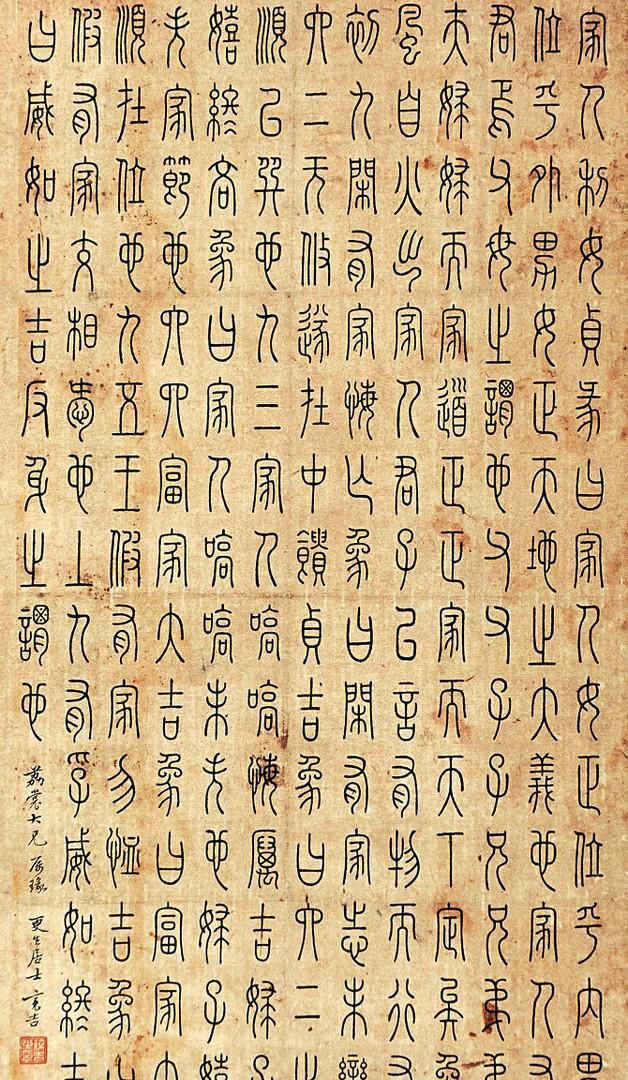 家人利女貞彖曰家人女正位乎内男
位乎外男女正天地之大義也家人有
君焉父母之謂也父父子子兄兄弟弟
夫婦婦而家道正正家而天下定矣象
風自火出家人君子以言有物而行有
初九閑有家悔亡象曰閑有家志未變
六二无攸遂在中饋貞吉象曰六二之
順以巽也九三家人嗃嗃悔厲吉婦子
嘻終吝象曰家人嗃嗃未失也婦子嘻
失家節也六四富家大吉象曰富家大
順在位也九五王假有家勿恤吉象曰
假有家交相愛也上九有孚威如終吉
曰威如之吉反身之謂也
荔裳大兄屬篆 更生居士亮吉